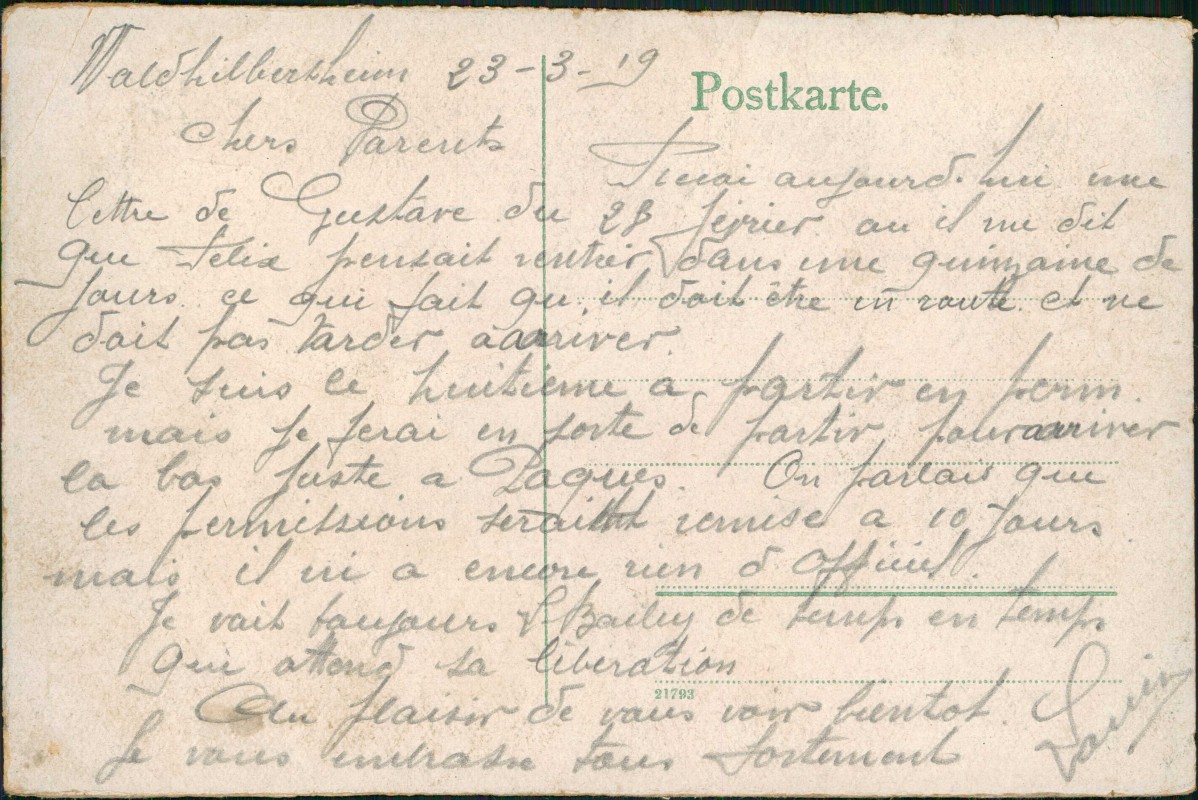 Waldhilbersheim 23-3-19
Postkarte.
Chers Parents
Reçai aujourd.hui une
lettre de Gustave du 28 février ou il me dit
que Felix pensait rentrer dans une quinzaine de
Jours ce qui fait qu'il doit être en route et ne
doit pas tarder a arriver.
Je suis le huitieme a partir en perm.
mais je ferai en sorte de partir pour arriver
la bas juste a Paques. On parlais que
les permissions serait remise a 10 Jours
mais il ni a encore rien d officiel.
Je vait toujours Bailey de temp en temps
qui attend sa libération
21793
Au plaisir de vous voir bientot.
Je vous embrasse tous fortement